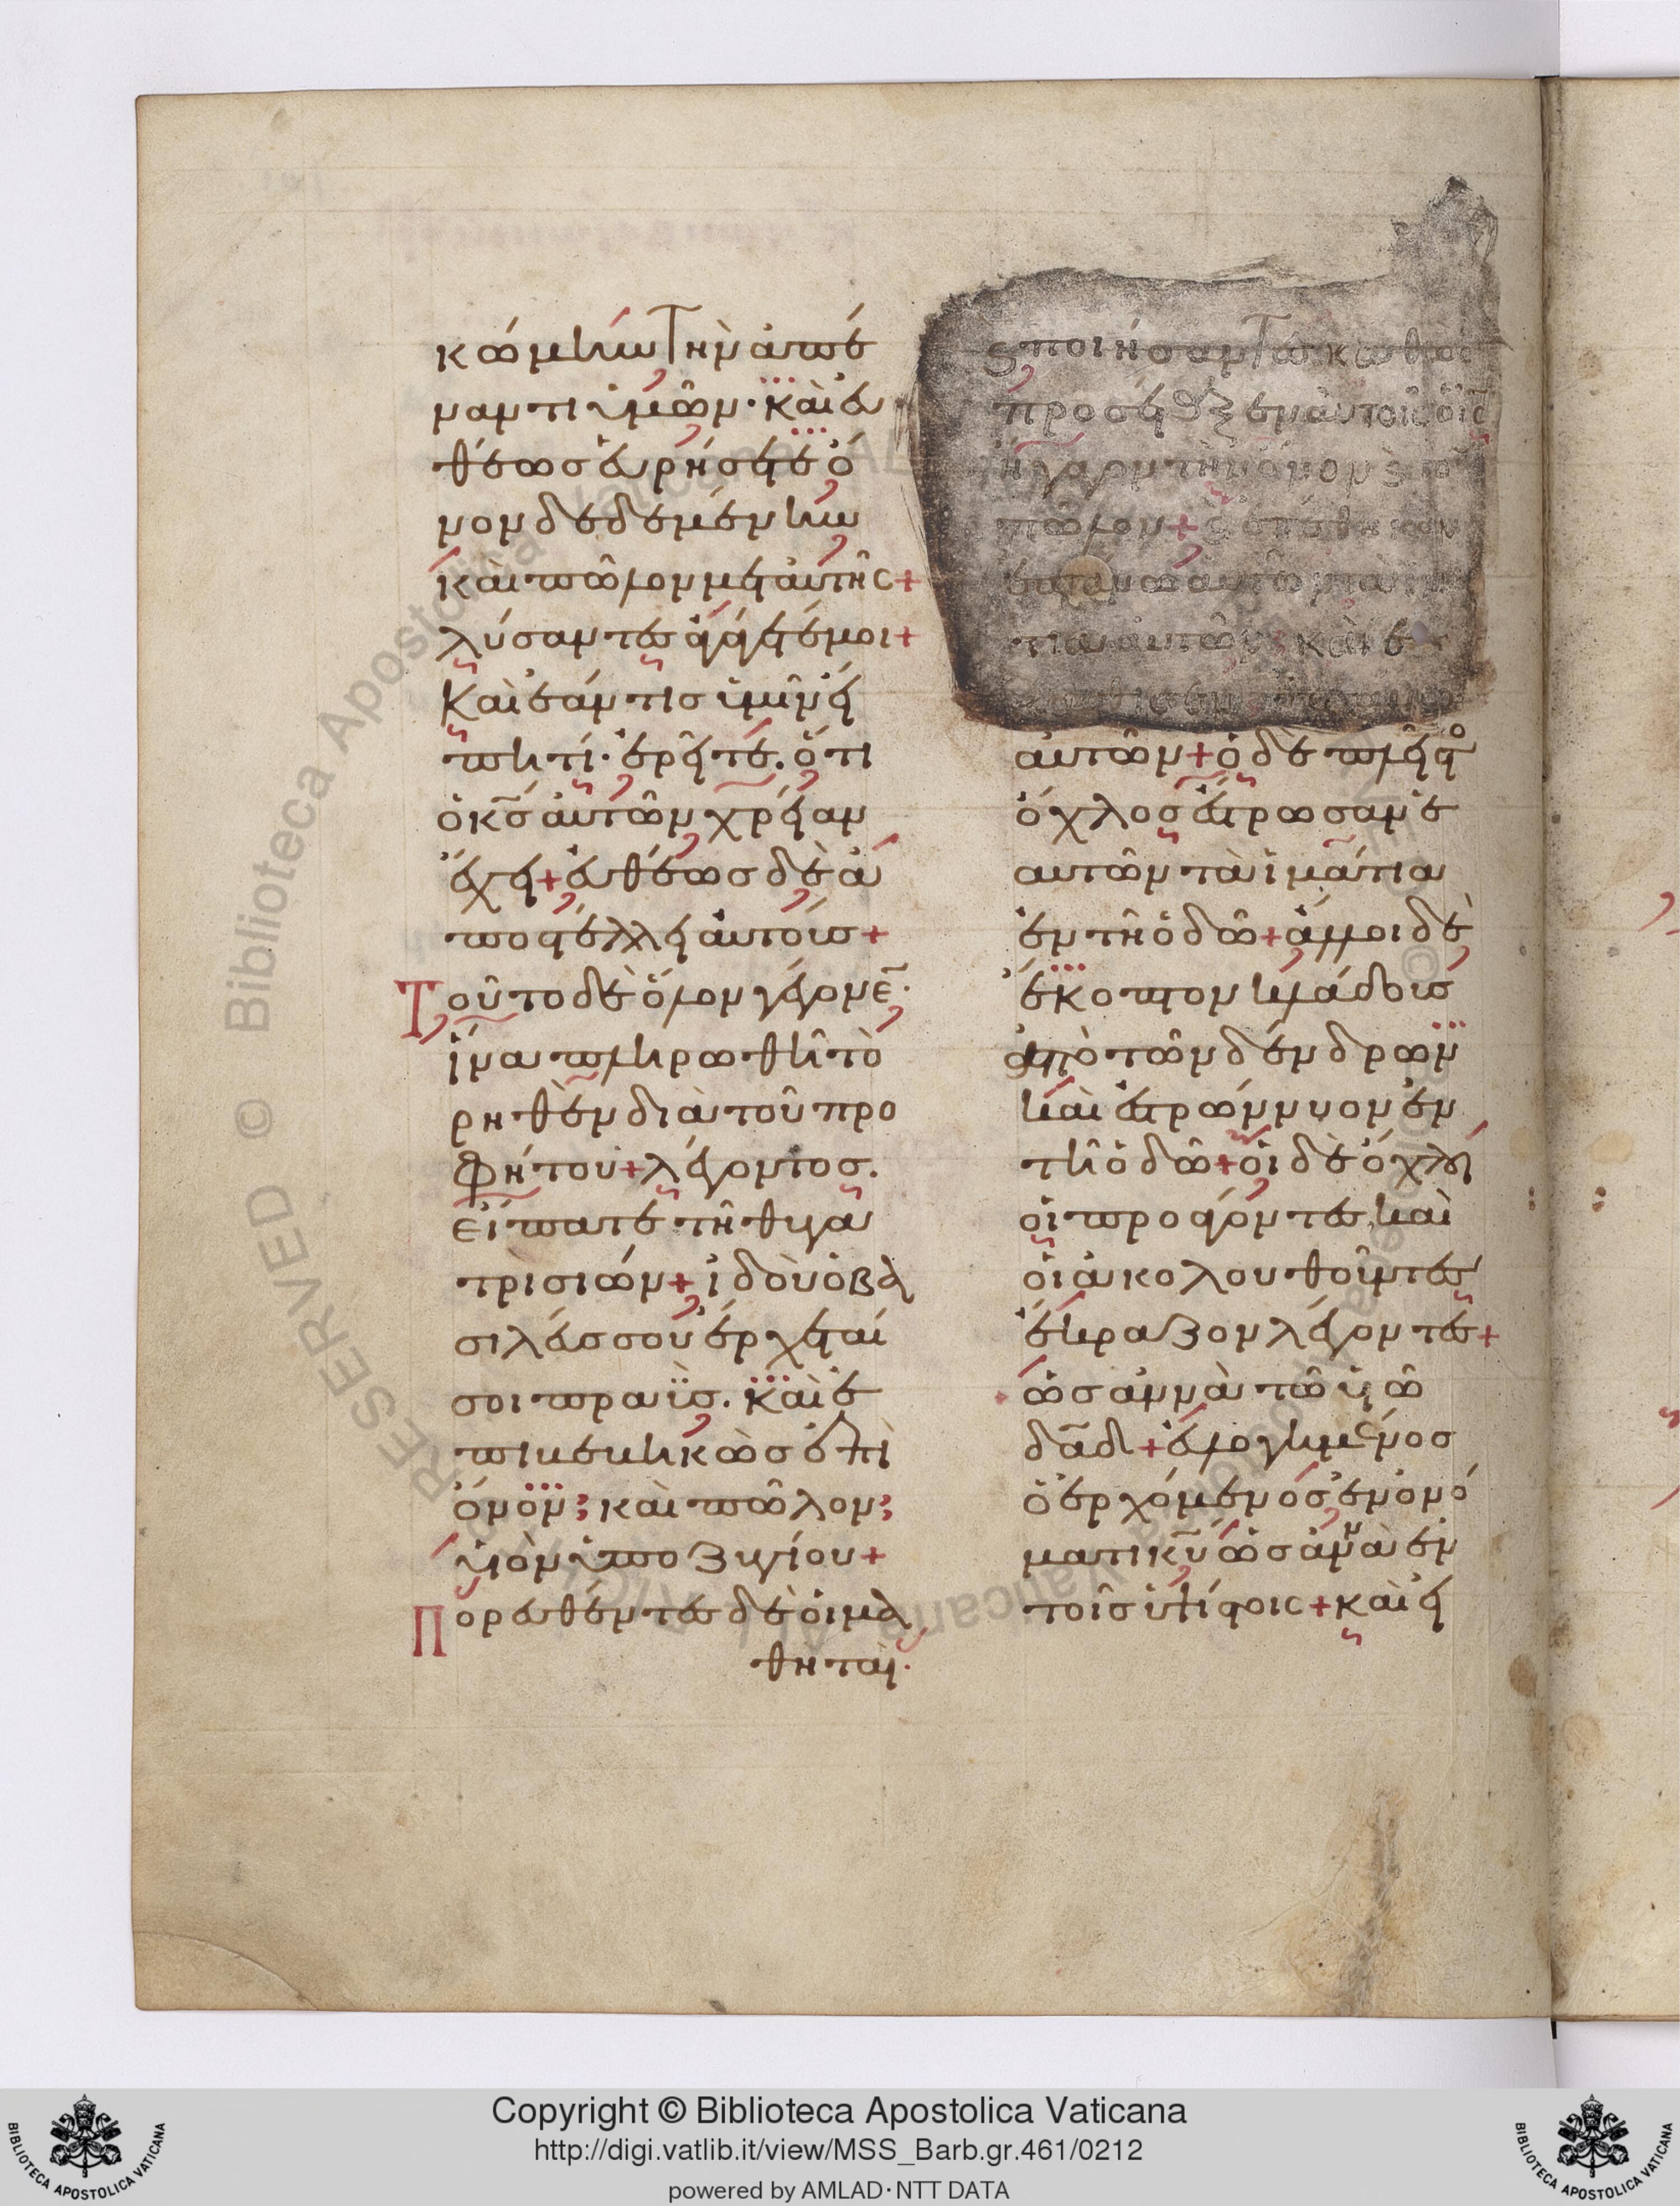 κώμην τὴν ἀπέ
ναντι ὑμῶν· καὶ εὐ
θέως εὑρήσετε ὄ
νον δεδεμένην
καὶ πῶλον μετ αὐτῆς +
λύσαντες ἀγάγετέ μοι +
Καὶ ἐάν τις ὑμῖν εἴ
πη τί· ἐρεῖτε. ὅτι
ὁ κς̅ αὐτῶν χρείαν
ἔχει + εὐθέως δὲ ἀ
ποστέλλει αὐτούς +
Τοῦτο δὲ ὅλον γέγονε̅·
ἵνα πληρωθῆ τὸ
ρηθὲν διὰ τοῦ προ
φήτου + λέγοντος.
εἴπατε τῆ θυγα
τρὶ σιών + ἰδοὺ ὁ βα
σιλεύς σου ἔρχεταί
σοι πραΰς. καὶ ἐ
πιβεβηκὼς ἐπὶ
ὄνον; καὶ πῶλον;
υἱὸν ὑποζυγίου +
Πορευθέντες δὲ οἱ μα
θηταί·
ϗ ποιήσαντες καθὼς
προσέταξεν αὐτοῖς ὁ ις̅
ἤγαγον τὴν ὄνον ϗ τὸν
πῶλον + ϗ ἐπέθηκαν
ἐπάνω αὐτῶν τὰ ἱμά
τια αὐτῶν; καὶ ἐ
αὐτῶν + ὁ δὲ πλεῖστος
ὄχλος ἔστρωσαν ἑ
αυτῶν τὰ ἱμάτια
ἐν τῆ ὁδῶ + ἄλλοι δὲ
ἔκοπτον κλάδους
ἀπὸ τῶν δένδρων
καὶ ἐστρώννυον ἐν
τῆ ὁδῶ + οἱ δὲ ὄχλοι
οἱ προάγοντες καὶ
οἱ ἀκολουθοῦντες
ἔκραζον λέγοντες +
ὡσαννὰ τῶ υἱῶ
δα̅δ + εὐλογημένος
ὁ ἐρχόμενος ἐν ὀνό
ματι κυ̅ ὡσαννὰ ἐν
τοῖς ὑψίστοις + καὶ εἰ
Copyright © Biblioteca Apostolica Vaticana
http://digi.vatlib.it/view/MSS_Barb.gr.461/0212
powered by AMLAD·NTT DATA
BIBLIOTECA APOSTOLICA VATICANA
BIBLIOTECA APOSTOLICA VATICANA